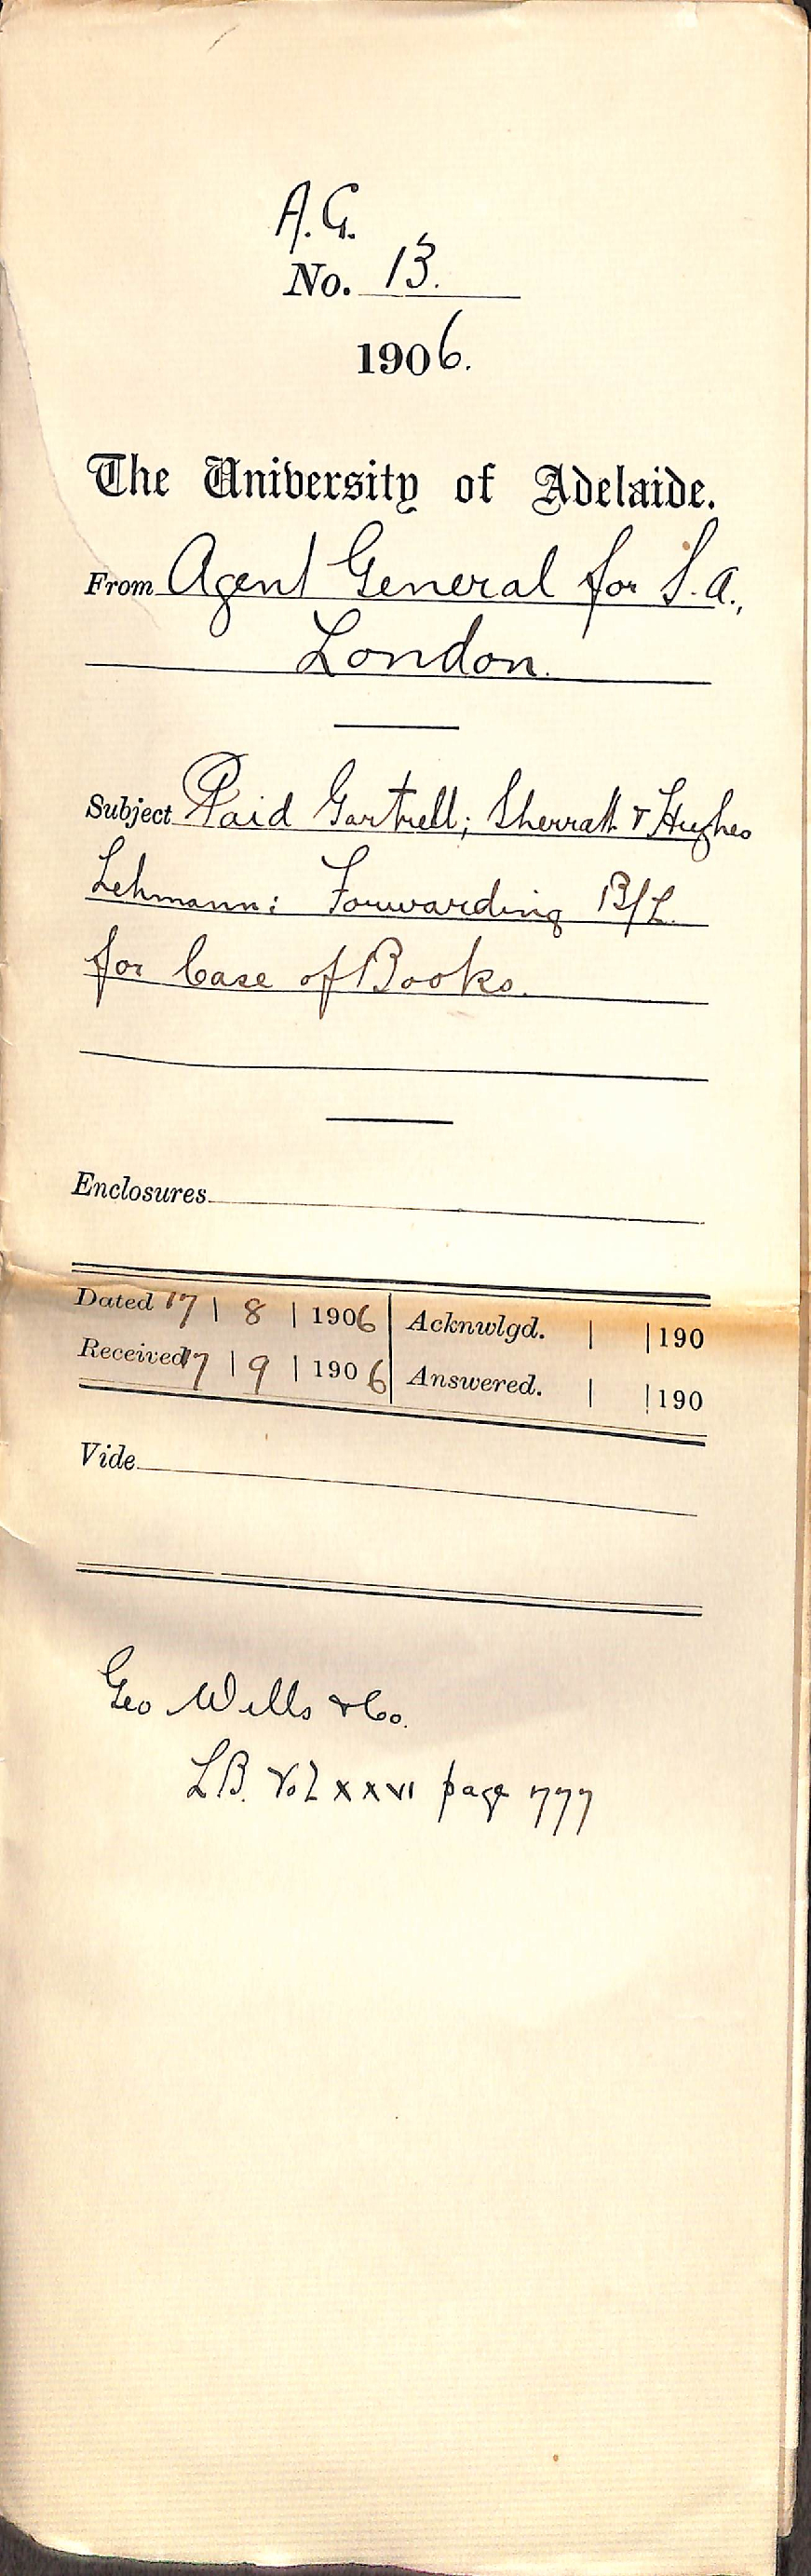 A.G.
No. 13.
1906.
The University of Adelaide.
From Agent General for S.A.,
London.
Subject Paid Gartrell; Sherratt & Hughes
Lehmann: Forwarding B/L
for Case of Books.
Enclosures
Dated 17 | 8 | 1906 Acknwlgd. | | 190
Received 17 | 9 | 1906 Answered. | | 190
Vide
Geo Wills & Co.
L.B. Vol xxvi page 777